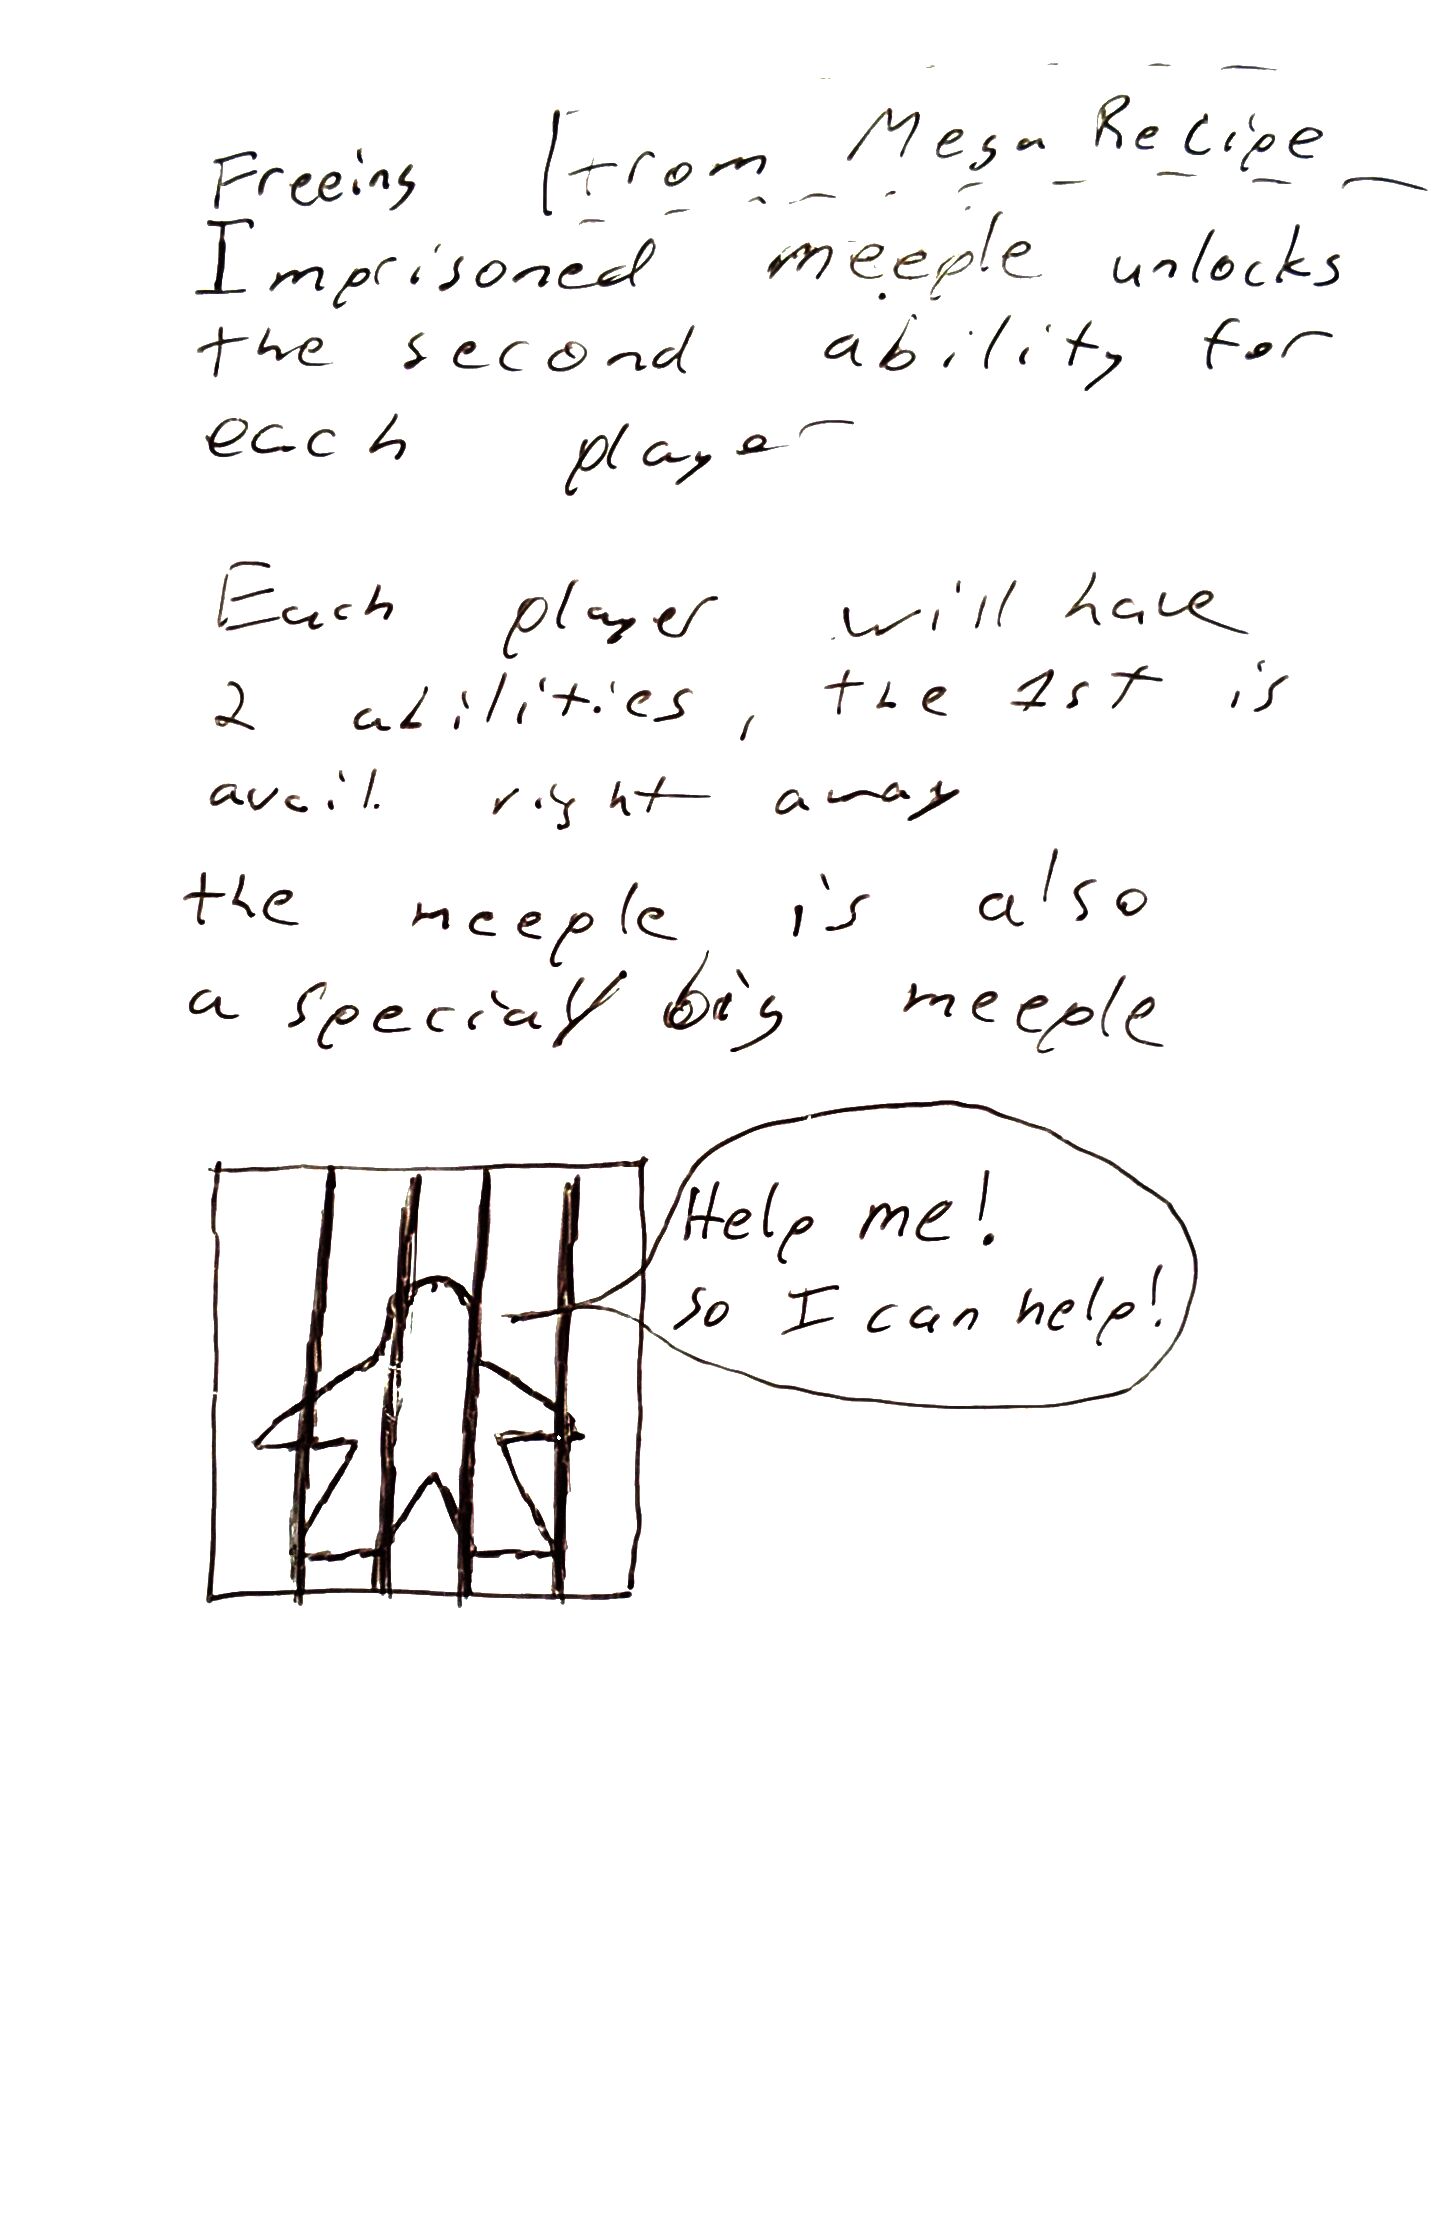 Freeing from Mega Recipe
Imprisoned meeple unlocks
the second ability for
each player
Each player will have
2 abilities, the 1st is
avail. right away
the meeple is also
a special big meeple
Help me!
so I can help!